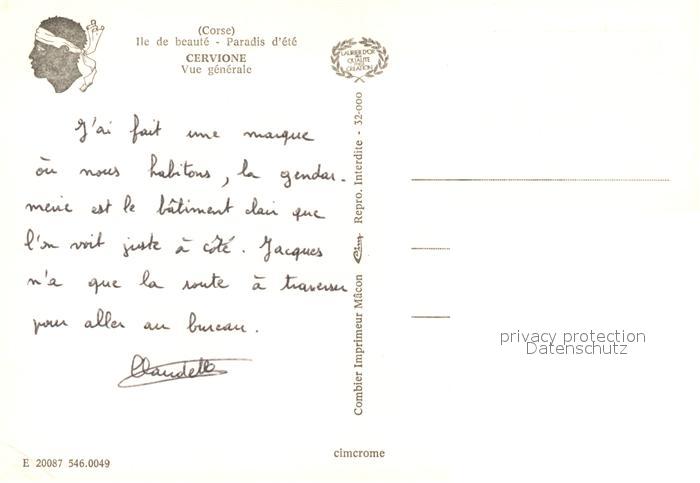 (Corse)
Ile de beauté - Paradis d'été
CERVIONE
Vue générale
LAURIER D'OR
QUALITÉ
CREATION
J'ai fait une marque
où nous habitons, la gendar-
merie est le bâtiment clair que
l'on voit juste à côté. Jacques
n'a que la route à traverser
pour aller au bureau.
Claudette
Combier Imprimeur Mâcon Cim Repro. Interdite - 32-000
privacy protection
Datenschutz
cimcrome
E 20087 546.0049